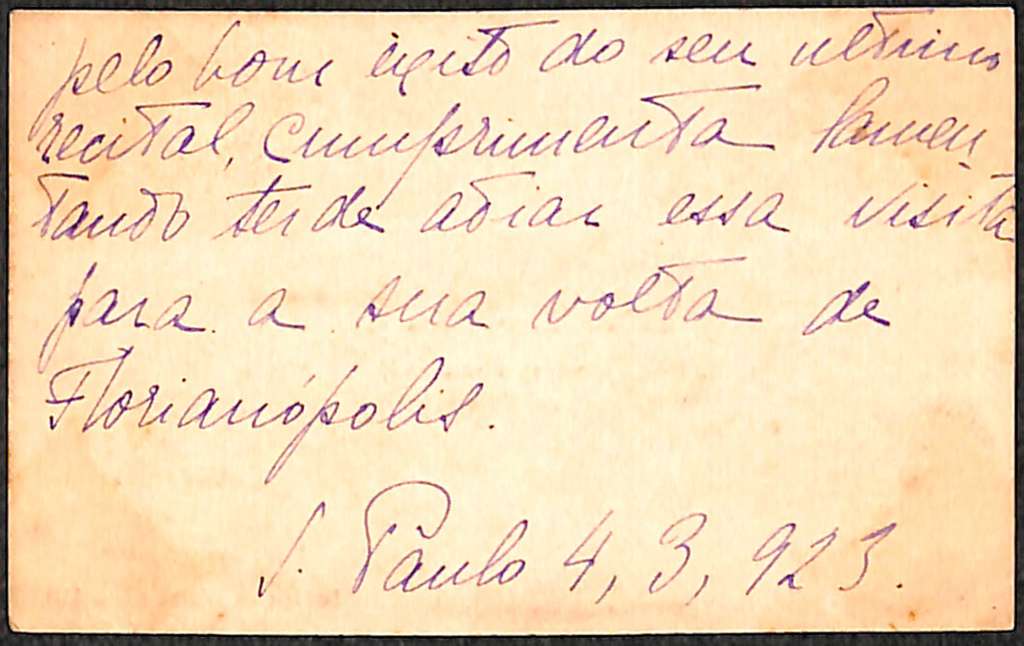 pelo bom exito do seu ultimo
recital, cumprimenta lamen-
tando ter de adiar essa visita
para a sua volta de
Florianópolis.
S. Paulo 4, 3, 923.